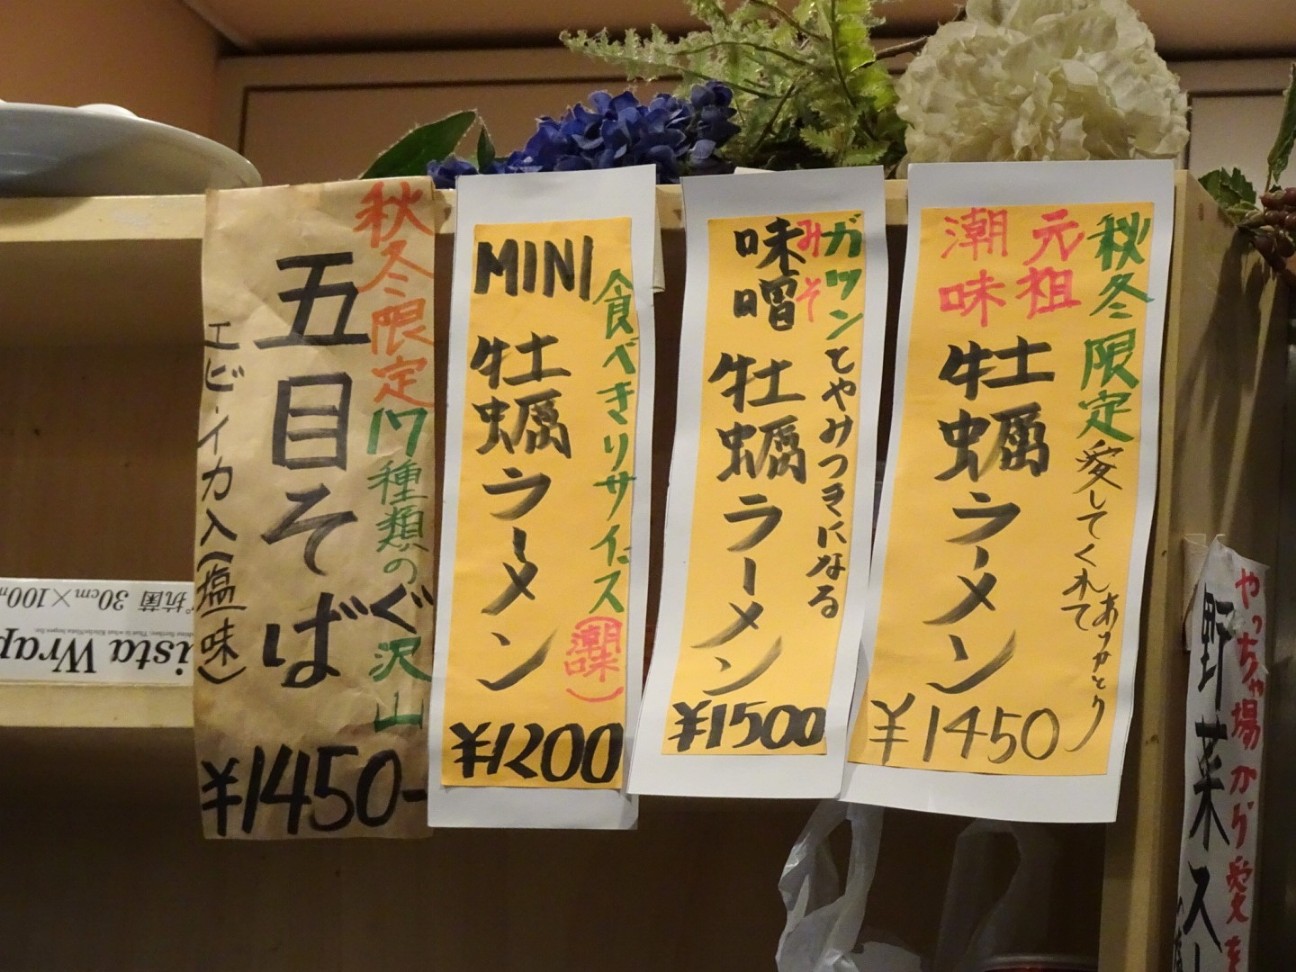 秋冬限定
愛してくれて
ありがとう
元祖
潮味
牡蠣ラーメン
¥1450
ガツンとやみつきになる
みそ
味噌
牡蠣ラーメン
¥1500
食べきりサイズ
(潮味)
MINI
牡蠣ラーメン
¥1200
秋冬限定
17種類のぐ沢山
五目そば
エビ・イカ入(塩味)
¥1450-
やっちゃ場から愛を
野菜
ista Wrap
抗菌 30cm×100